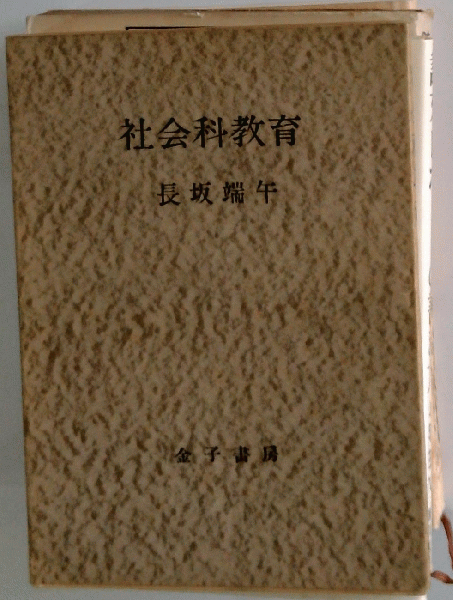 社会科教育
長坂端午
金子書房